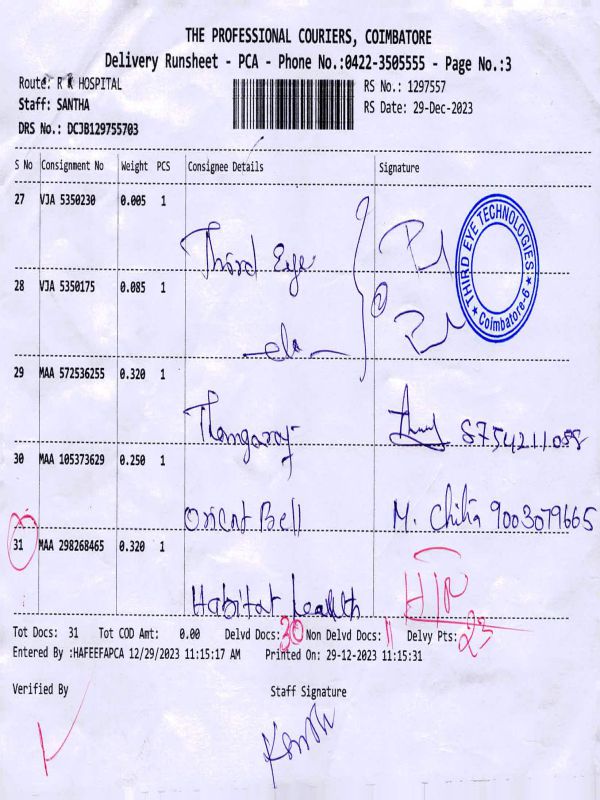 THE PROFESSIONAL COURIERS, COIMBATORE
Delivery Runsheet - PCA - Phone No.:0422-3505555 - Page No.:3
Route: R K HOSPITAL
RS No.: 1297557
Staff: SANTHA
RS Date: 29-Dec-2023
DRS No.: DCJB129755703
S No Consignment No Weight PCS Consignee Details Signature
27 VJA 5350230 0.005 1
Third Eye
THIRD EYE TECHNOLOGIES
Coimbatore-6
28 VJA 5350175 0.085 1
29 MAA 572536255 0.320 1
Thangaraj 8754211088
30 MAA 105373629 0.250 1
Orient Bell M. Chitra 9003079665
31 MAA 298268465 0.320 1
Habitat
Tot Docs: 31 Tot COD Amt: 0.00 Delvd Docs: 30 Non Delvd Docs: 1 Delvy Pts: 23
Entered By :HAFEEFAPCA 12/29/2023 11:15:17 AM Printed On: 29-12-2023 11:15:31
Verified By Staff Signature